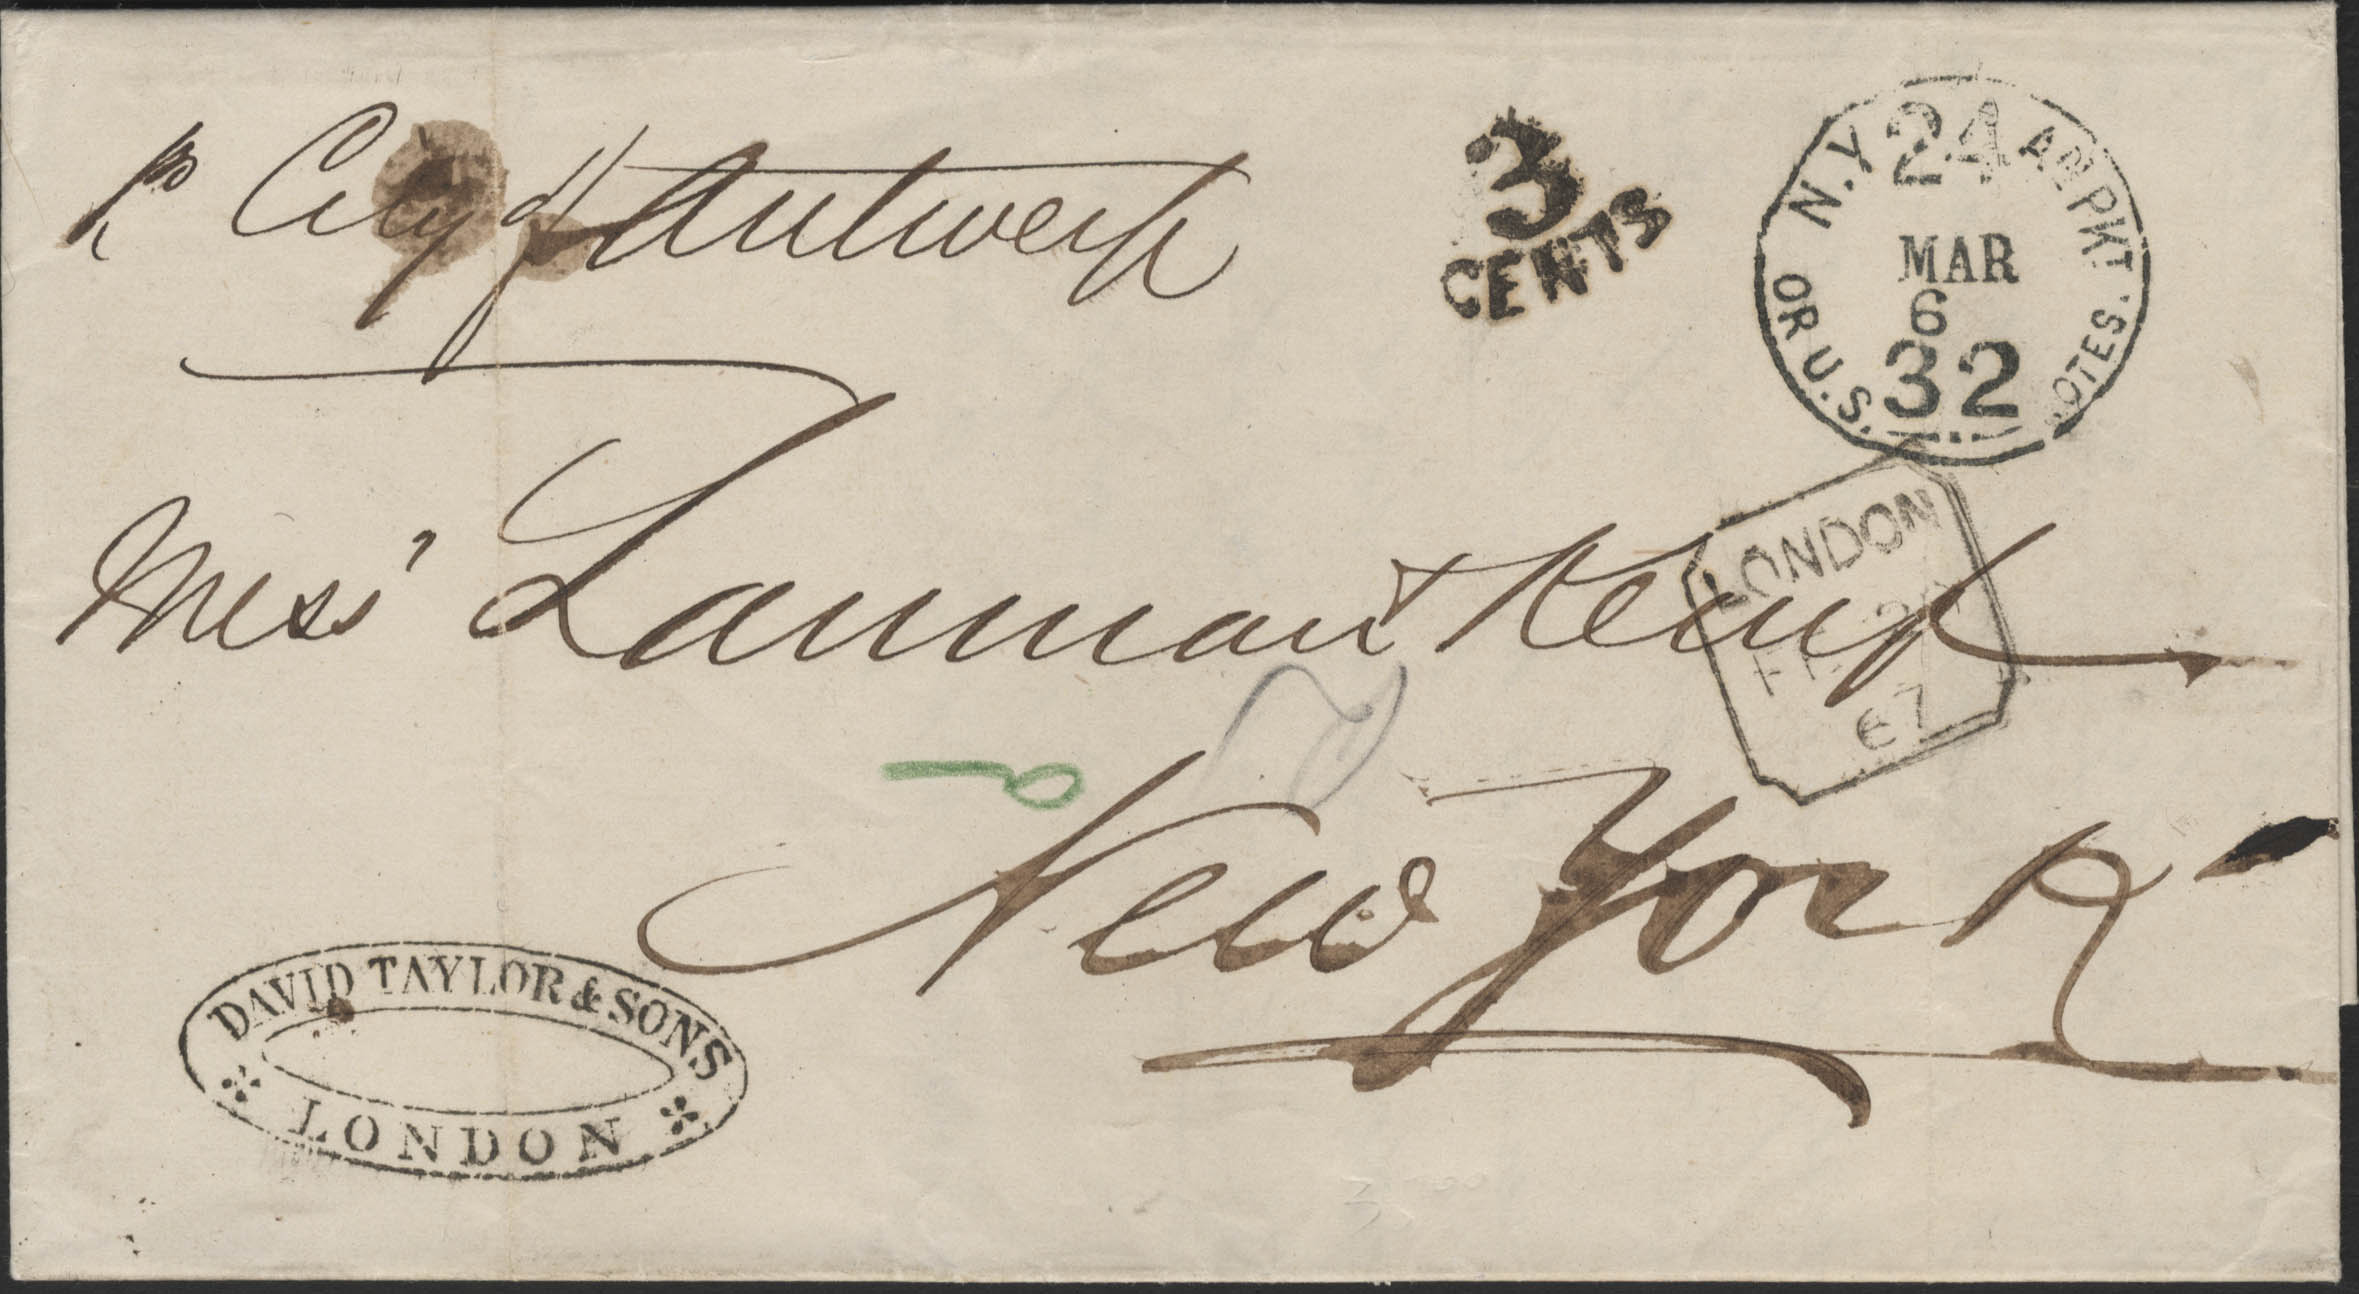 p City of Antwerp
3
CENTS
N.Y. 24 AM PKT
MAR
6
32
OR U.S. NOTES.
Mess' Lanman & Kemp
LONDON
FE
67
New York
DAVID TAYLOR & SONS
LONDON